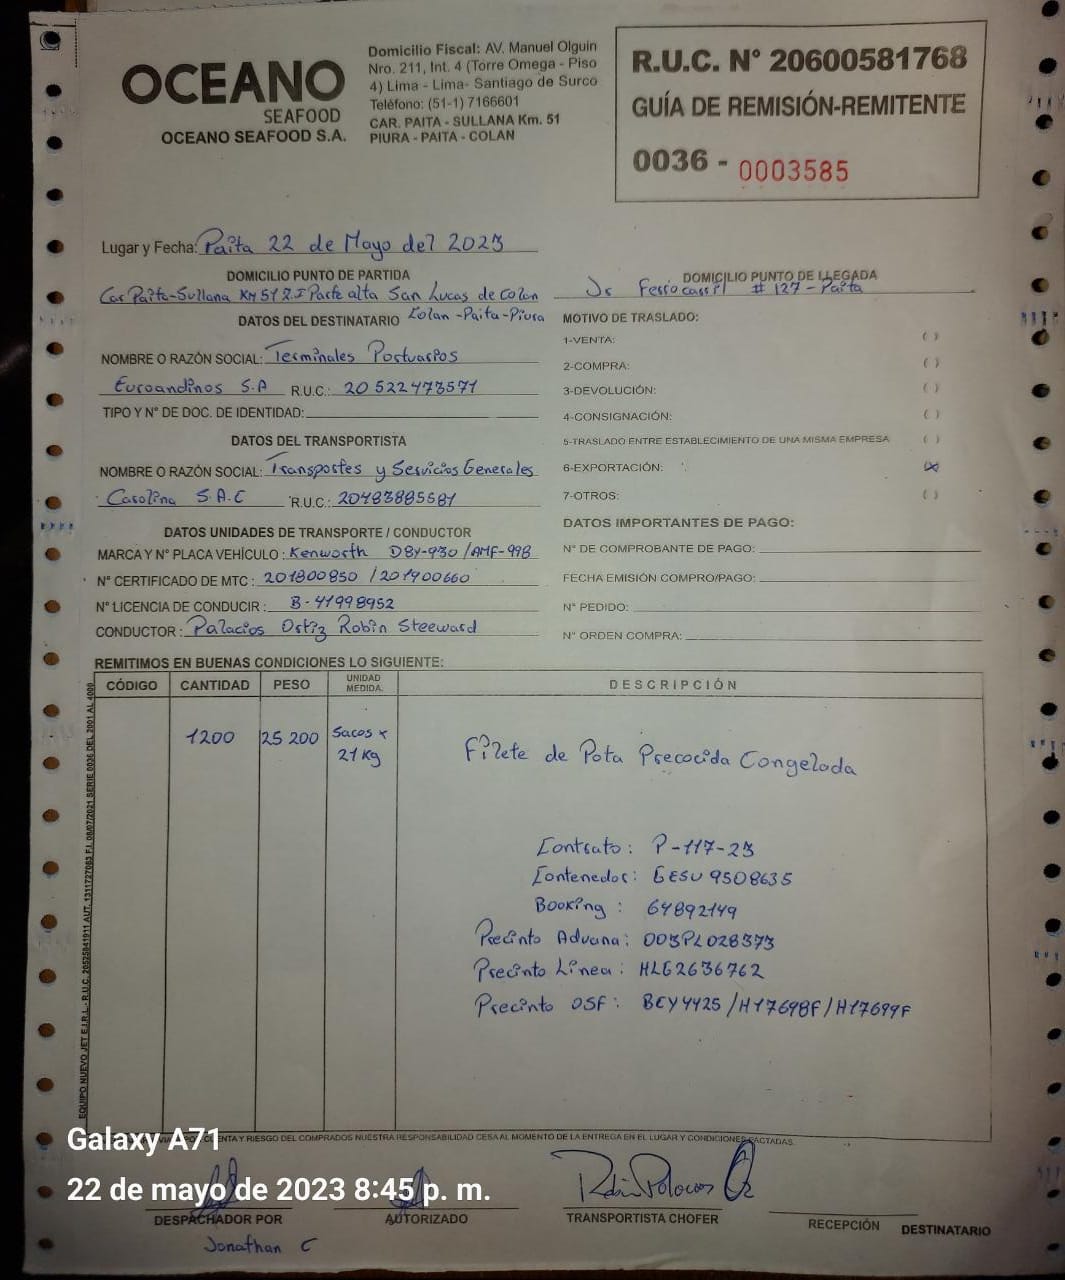 OCEANO
SEAFOOD
OCEANO SEAFOOD S.A.
Domicilio Fiscal: AV. Manuel Olguin
Nro. 211, Int. 4 (Torre Omega - Piso
4) Lima - Lima- Santiago de Surco
Teléfono: (51-1) 7166601
CAR. PAITA - SULLANA Km. 51
PIURA - PAITA - COLAN
R.U.C. N° 20600581768
GUÍA DE REMISIÓN-REMITENTE
0036 - 0003585
Lugar y Fecha: Paita 22 de Mayo del 2023
DOMICILIO PUNTO DE PARTIDA
Car Paita-Sullana KM 51 Z.I Parte alta San Lucas de Colan
Colan -Paita-Piura
DOMICILIO PUNTO DE LLEGADA
Jr Ferrocarril # 127 - Paita
DATOS DEL DESTINATARIO
NOMBRE O RAZÓN SOCIAL: Terminales Portuarios
Euroandinos S.A R.U.C.: 20522473571
TIPO Y N° DE DOC. DE IDENTIDAD:
DATOS DEL TRANSPORTISTA
NOMBRE O RAZÓN SOCIAL: Transportes y Servicios Generales
Carolina S.A.C R.U.C.: 20483885581
DATOS UNIDADES DE TRANSPORTE / CONDUCTOR
MARCA Y N° PLACA VEHÍCULO: Kenworth D8Y-930 /AMF-998
N° CERTIFICADO DE MTC: 201800850 /201900660
N° LICENCIA DE CONDUCIR: B-41998952
CONDUCTOR: Palacios Ortiz Robin Steeward
MOTIVO DE TRASLADO:
1-VENTA: ( )
2-COMPRA: ( )
3-DEVOLUCIÓN: ( )
4-CONSIGNACIÓN: ( )
5-TRASLADO ENTRE ESTABLECIMIENTO DE UNA MISMA EMPRESA ( )
6-EXPORTACIÓN: (x)
7-OTROS: ( )
DATOS IMPORTANTES DE PAGO:
N° DE COMPROBANTE DE PAGO:
FECHA EMISIÓN COMPRO/PAGO:
N° PEDIDO:
N° ORDEN COMPRA:
REMITIMOS EN BUENAS CONDICIONES LO SIGUIENTE:
CÓDIGO CANTIDAD PESO UNIDAD MEDIDA. DESCRIPCIÓN
1200 25 200 Sacos x 21 Kg Filete de Pota Precocida Congelada
Contrato: P-117-23
Contenedor: GESU 9508635
Booking: 64892149
Precinto Aduana: 003PL028373
Precinto Linea: HLG2636762
Precinto OSF: BEY4425 /H17698F/H17699F
EQUIPO NUEVO JET E.I.R.L.- R.U.C. 20525841911 AUT. 1311727083 F.I. 08/07/2021 SERIE 0036 DEL 2001 AL 4000
CUENTA Y RIESGO DEL COMPRADOS NUESTRA RESPONSABILIDAD CESA AL MOMENTO DE LA ENTREGA EN EL LUGAR Y CONDICIONES PACTADAS.
Galaxy A71
22 de mayo de 2023 8:45 p. m.
Robin Palacios O
DESPACHADOR POR
Jonathan C
AUTORIZADO
TRANSPORTISTA CHOFER
RECEPCIÓN DESTINATARIO